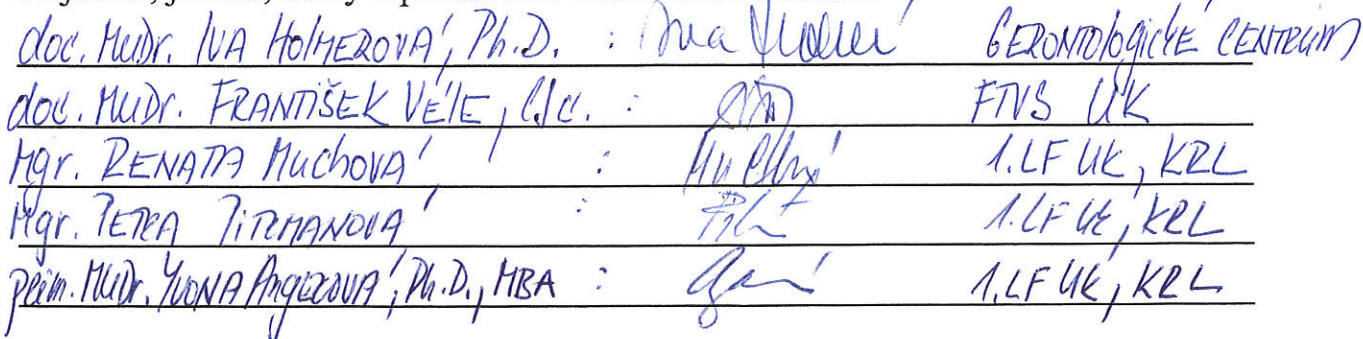 doc. MUDr. IVA HOLMEROVÁ, Ph.D. : Iva GERONTOLOGICKÉ CENTRUM
doc. MUDr. FRANTIŠEK VÉLE, CSc. : FTVS UK
Mgr. RENATA MUCHOVÁ : Muchová 1.LF UK, KRL
Mgr. PETRA : 1.LF UK, KRL
prim. MUDr. YVONA ANGEROVÁ, Ph.D., MBA : 1.LF UK, KRL